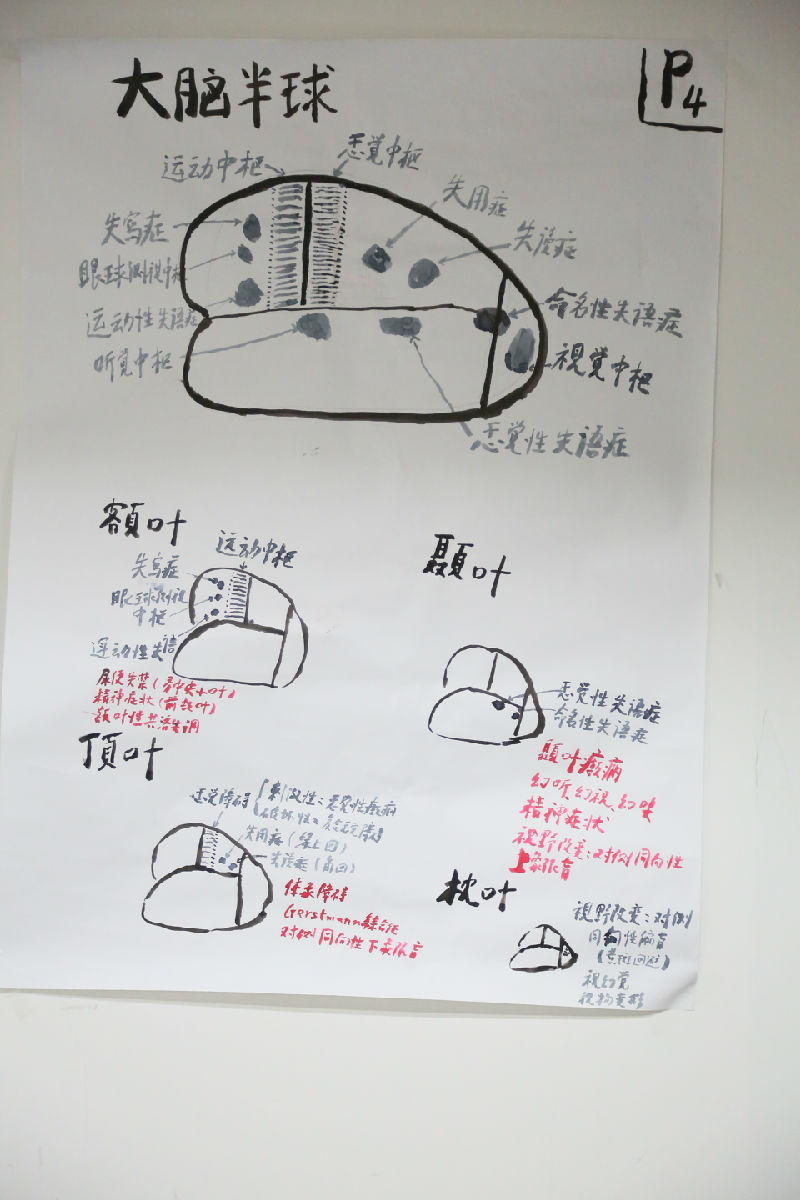 大脑半球
P4
运动中枢
感觉中枢
失写症
失用症
眼球测视中枢
失读症
运动性失语症
命名性失语症
听觉中枢
视觉中枢
感觉性失语症
额叶
运动中枢
失写症
眼球测视
中枢
运动性失语
尿便失禁(旁中央小叶)
精神症状(前额叶)
额叶性共济失调
颞叶
感觉性失语症
命名性失语症
颞叶癫痫
幻听,幻视,幻嗅
精神症状
视野改变:对侧同向性
上象限盲
顶叶
感觉障碍
刺激性:感觉性癫痫
破坏性:
失用症(缘上回)
失读症(角回)
体象障碍
Gerstmann综合征
对侧同向性下象限盲
枕叶
视野改变:对侧
同向性偏盲
(黄斑回避)
视幻觉
视物变形